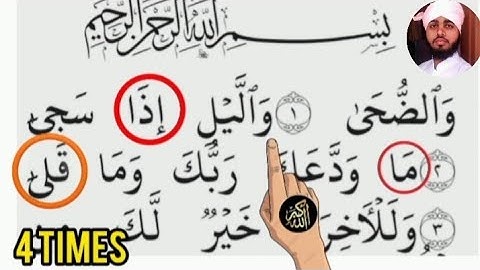 بِسْمِ اللَّهِ الرَّحْمَٰنِ الرَّحِيمِ
وَالضُّحَىٰ ۝١ وَالَّيْلِ إِذَا سَجَىٰ
۝٢ مَا وَدَّعَكَ رَبُّكَ وَمَا قَلَىٰ
۝٣ وَلَلْآخِرَةُ خَيْرٌ لَّكَ
4 TIMES